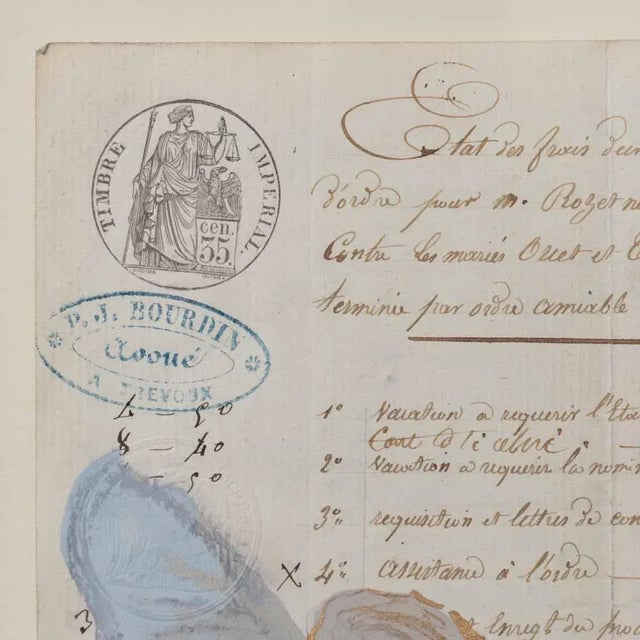 TIMBRE IMPERIAL.
cen.
35.
P. J. BOURDIN
Avoué
A TREVOUX
4 — 50
8 — 40
— 50
3
Etat des frais d'un
D'ordre pour M. Rozet
Contre les mariés Ouet et
terminée par ordre amiable
1° Vacation a requerir l'Eta
2° Vacation a requerir la nomin
3° requisition et lettres de con
X 4° assistance à l'ordre —
Enregt du pro